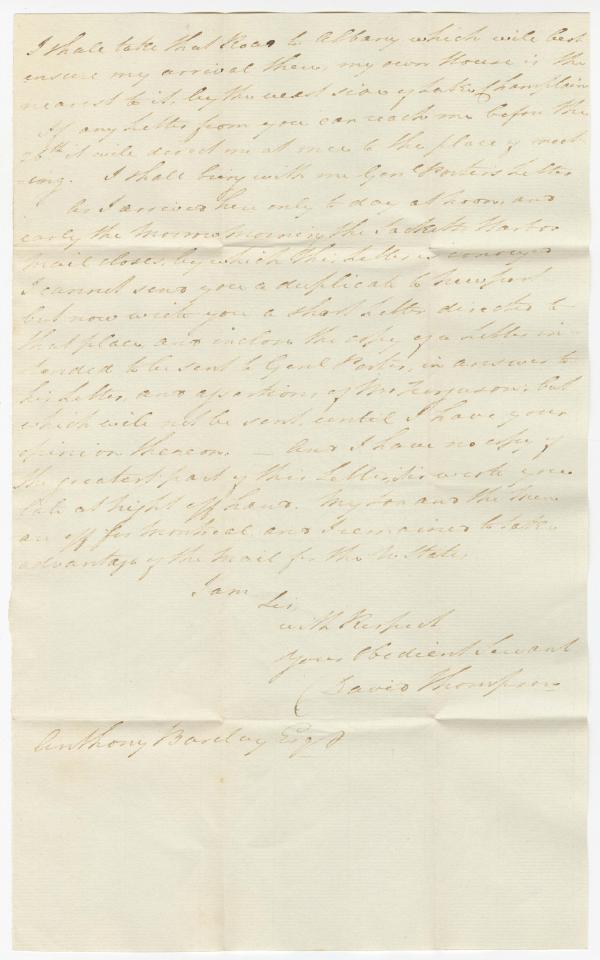 I shall take that Road to Albany which will best
ensure my arrival there, my own House is the
nearest to it, by the west side of Lake Champlain
If any Letter from you can reach me before the
26th it will direct me at once to the place of meet
-ing. I shall bring with me Genl Porters Letter
As I arrived here only to day at noon, and
early the Morrow Morning the Sacketts Harbor
Mail closes, by which this Letter is conveyed
I cannot send you a duplicate to Newport
but now write you a short Letter directed to
that place, and inclose the copy of a Letter in
-tended to be sent to Genl Porter, in answer to
his Letter, and assertions of Mr Ferguson; but
which will not be sent, until I have your
opinion thereon. — And I have no copy of
the greatest part of this Letter,
late at night off hand. My Son and the Men
are off for Montreal, and I remained to take
advantage of the Mail for the U States.
I am
Sir
with Respect
Your Obedient Servant
David Thompson
Anthony Barclay Esqr